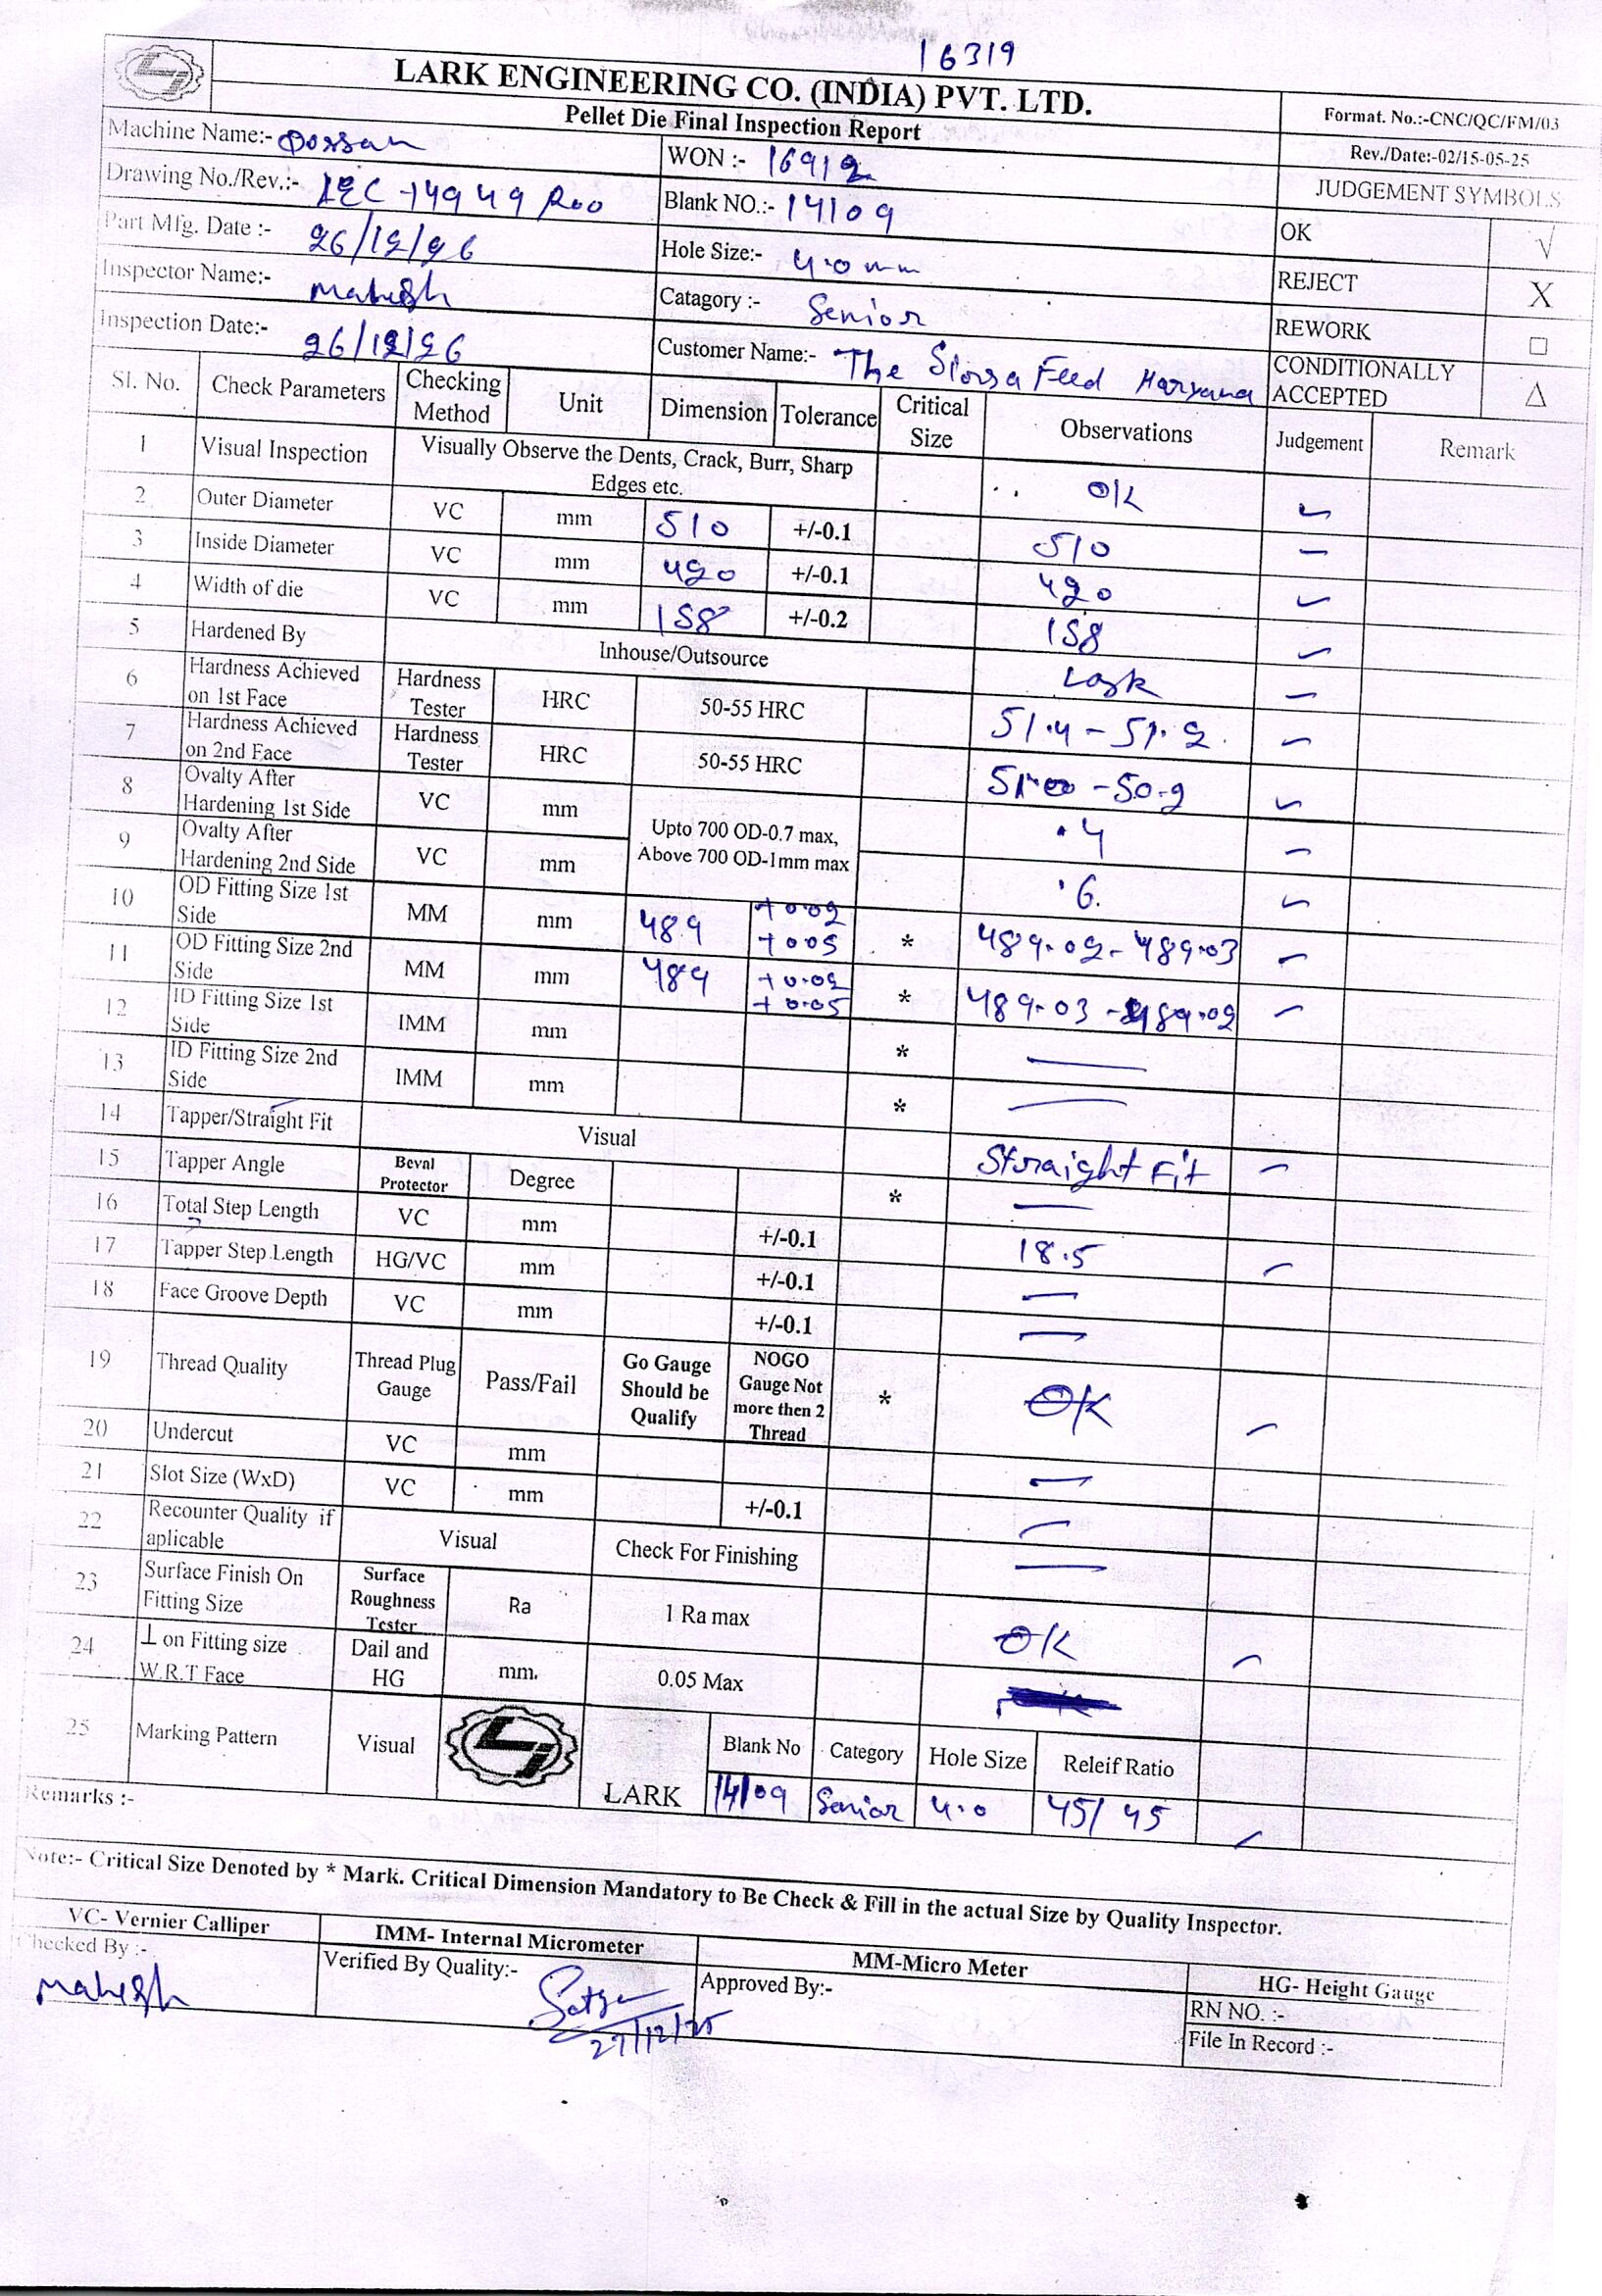 16319
LARK ENGINEERING CO. (INDIA) PVT. LTD.
Pellet Die Final Inspection Report
Format. No.:-CNC/QC/FM/03
Rev./Date:-02/15-05-25
Machine Name:- Dossan
WON :- 16912
Drawing No./Rev.:- LEC-14949 R00
Blank NO.:- 14109
JUDGEMENT SYMBOLS
Part Mfg. Date :- 26/12/26
Hole Size:- 4.0 mm
OK √
Inspector Name:- Mahesh
Catagory :- Senior
REJECT X
Inspection Date:- 26/12/26
Customer Name:- The Feed Haryana
REWORK □
CONDITIONALLY ACCEPTED △
Sl. No. Check Parameters Checking Method Unit Dimension Tolerance Critical Size Observations Judgement Remark
1 Visual Inspection Visually Observe the Dents, Crack, Burr, Sharp Edges etc. OK
2 Outer Diameter VC mm 510 +/-0.1 510
3 Inside Diameter VC mm 420 +/-0.1 420
4 Width of die VC mm 158 +/-0.2 158
5 Hardened By Inhouse/Outsource Lark
6 Hardness Achieved on 1st Face Hardness Tester HRC 50-55 HRC 51.4 - 51.2
7 Hardness Achieved on 2nd Face Hardness Tester HRC 50-55 HRC 51.00 - 50.9
8 Ovalty After Hardening 1st Side VC mm Upto 700 OD-0.7 max, Above 700 OD-1mm max .4
9 Ovalty After Hardening 2nd Side VC mm .6
10 OD Fitting Size 1st Side MM mm 489 +0.02 +0.05 * 489.02 - 489.03
11 OD Fitting Size 2nd Side MM mm 489 +0.02 +0.05 * 489.03 - 489.02
12 ID Fitting Size 1st Side IMM mm * —
13 ID Fitting Size 2nd Side IMM mm * —
14 Tapper/Straight Fit Visual Straight Fit
15 Tapper Angle Beval Protector Degree * —
16 Total Step Length VC mm +/-0.1 18.5
17 Tapper Step Length HG/VC mm +/-0.1 —
18 Face Groove Depth VC mm +/-0.1 —
19 Thread Quality Thread Plug Gauge Pass/Fail Go Gauge Should be Qualify NOGO Gauge Not more then 2 Thread * OK
20 Undercut VC mm —
21 Slot Size (WxD) VC mm +/-0.1 —
22 Recounter Quality if aplicable Visual Check For Finishing —
23 Surface Finish On Fitting Size Surface Roughness Tester Ra 1 Ra max OK
24 ⊥ on Fitting size W.R.T Face Dail and HG mm. 0.05 Max
25 Marking Pattern Visual LARK Blank No Category Hole Size Releif Ratio
14109 Senior 4.0 45/45
Remarks :-
Note:- Critical Size Denoted by * Mark. Critical Dimension Mandatory to Be Check & Fill in the actual Size by Quality Inspector.
VC- Vernier Calliper IMM- Internal Micrometer MM-Micro Meter HG- Height Gauge
Checked By :- Mahesh
Verified By Quality:-
27/12/25
Approved By:-
RN NO. :-
File In Record :-